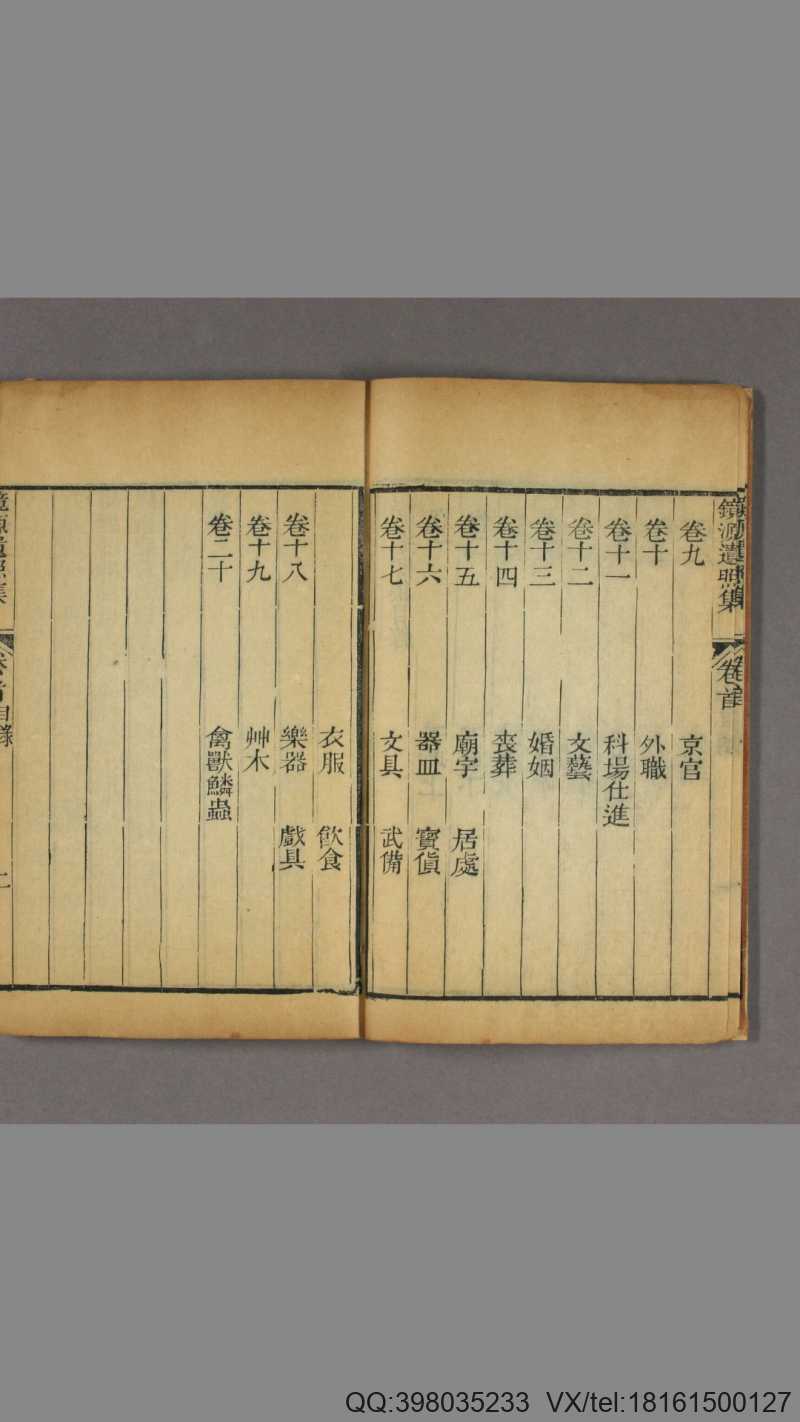 鏡源遺照集 卷首
卷九 京官
卷十 外職
卷十一 科場仕進
卷十二 文藝
卷十三 婚姻
卷十四 喪葬
卷十五 廟宇 居處
卷十六 器皿 寳貨
卷十七 文具 武備
衣服 飲食
卷十八 樂器 戲具
卷十九 艸木
卷二十 禽獸鱗蟲
目錄
二
QQ:398035233 VX/tel:18161500127